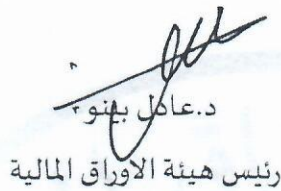 د.عادل بينو
رئيس هيئة الاوراق المالية